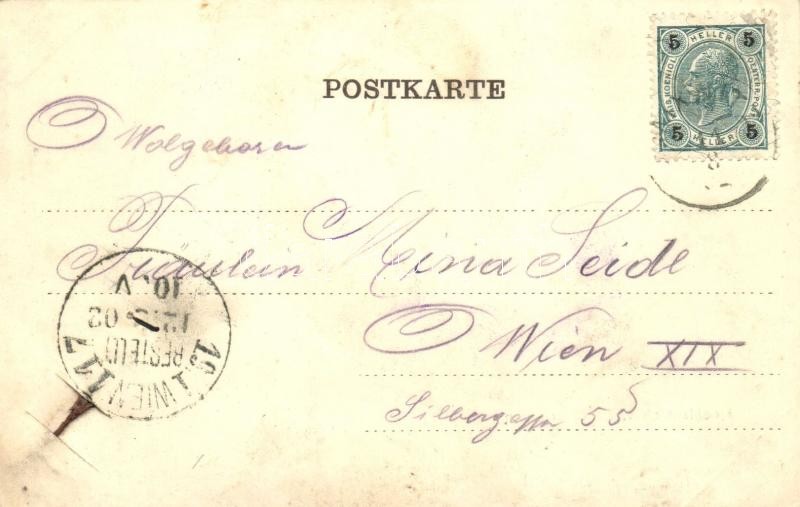 POSTKARTE
5 HELLER 5
5 HELLER 5
Wolgeboren
Fräulein Mina Seide
Wien XIX
Silbergasse 55
19/1 WIEN 117
BESTELLT
02
10.V